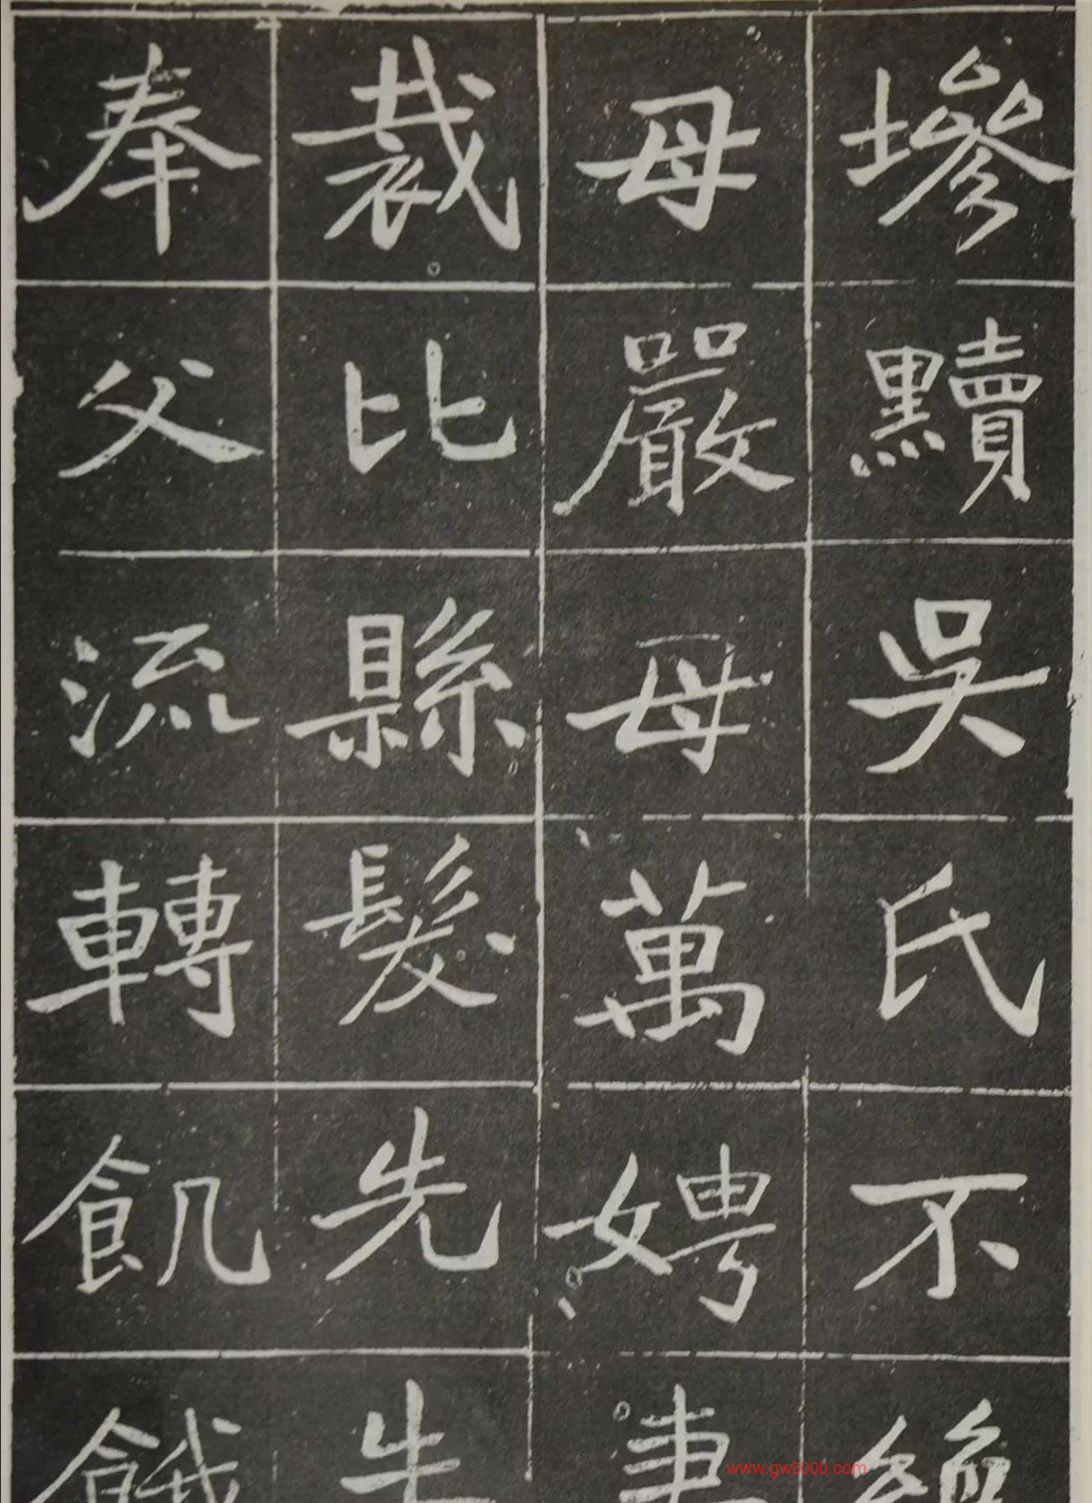 墋黷吳氏不絕
母嚴母萬娉妻
裁比縣髮先生
奉父流轉飢餓
www.gw5000.com